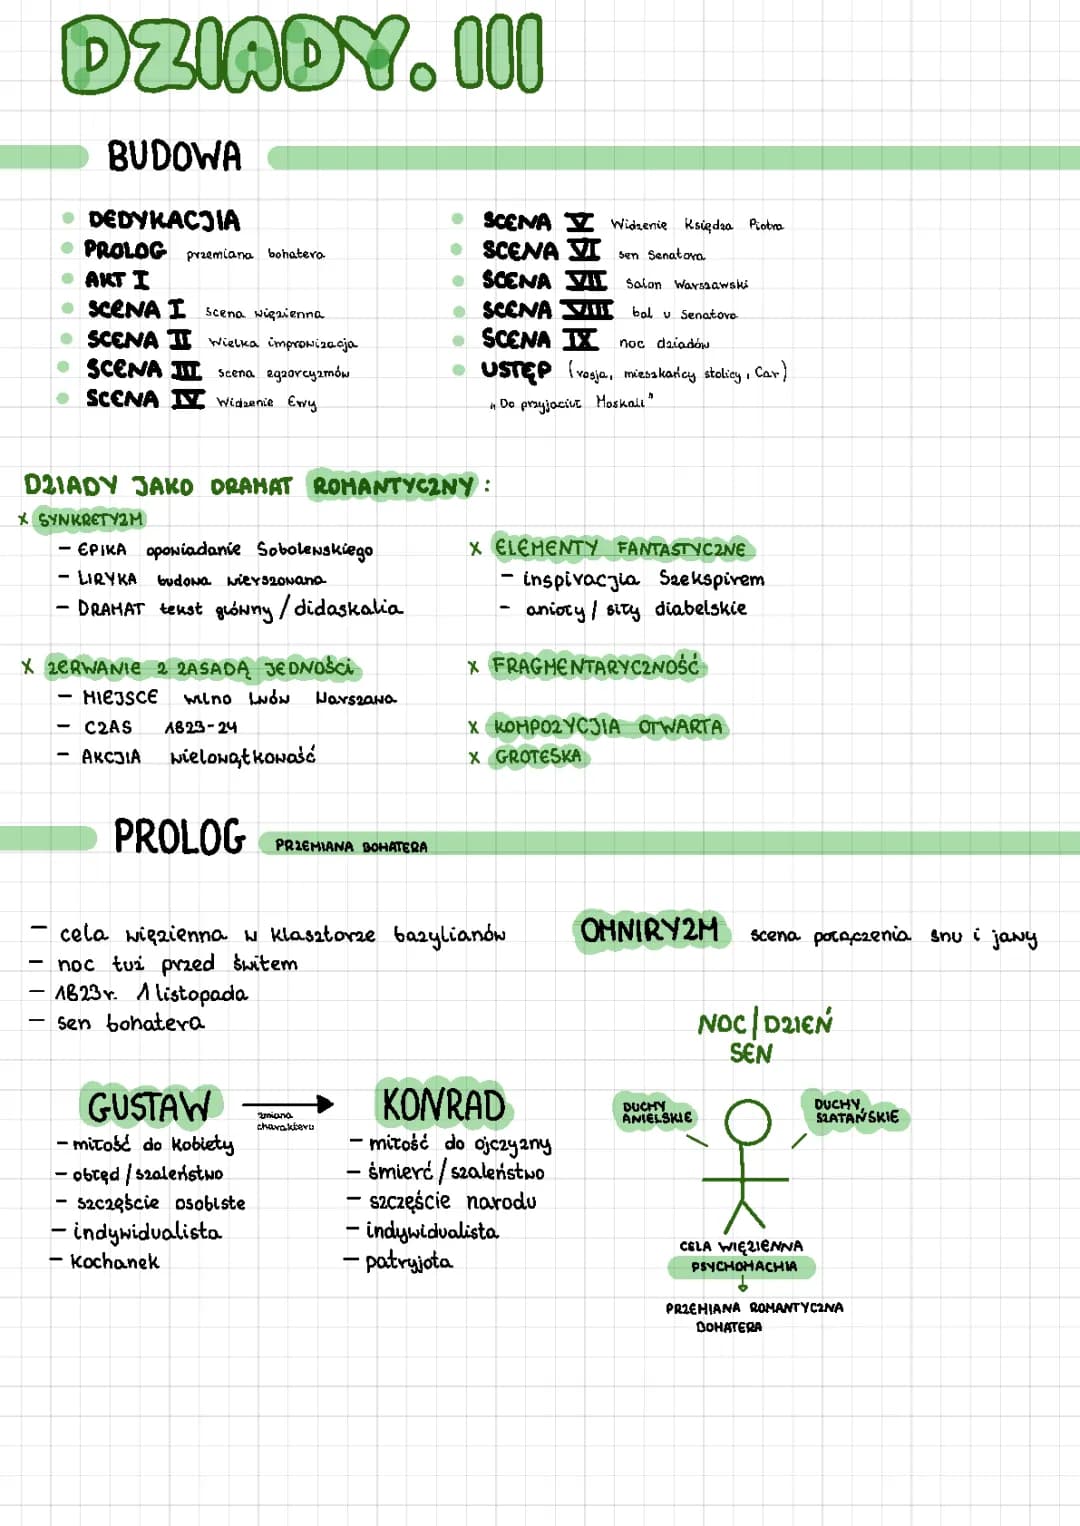 DZIADY. III
BUDOWA
DEDYKACJIA
PROLOG przemiana bohatera
AKT I
SCENA I scena więzienna
SCENA II Wielka improwizacja
SCENA III scena egzorcyzmów
SCENA IV Widzenie Ewy
SCENA V Widzenie Księdza Piotra
SCENA VI sen Senatora
SCENA VII Salon Warszawski
SCENA VIII bal u Senatora
SCENA IX noc dziadów
USTĘP (rosja, mieszkańcy stolicy, Car)
"Do przyjaciół Moskali"
DZIADY JAKO DRAMAT ROMANTYCZNY:
x SYNKRETYZM
- EPIKA opowiadanie Sobolewskiego
- LIRYKA budowa wierszowana
- DRAMAT tekst główny / didaskalia
x ZERWANIE Z ZASADĄ JEDNOŚCI
- MIEJSCE wilno Lwów Warszawa
- CZAS 1823-24
- AKCJIA wielowątkowość
x ELEMENTY FANTASTYCZNE
- inspiracjia Szekspirem
- anioły / siły diabelskie
x FRAGMENTARYCZNOŚĆ
x KOMPOZYCJIA OTWARTA
x GROTESKA
PROLOG PRZEMIANA BOHATERA
- cela więzienna w klasztorze bazylianów
- noc tuż przed świtem
- 1823r. 1 listopada
- sen bohatera
OMNIRYZM scena połączenia snu i jawy
GUSTAW
- miłość do kobiety
- obłęd / szaleństwo
- szczęście osobiste
- indywidualista
- kochanek
zmiana
charakteru
KONRAD
- miłość do ojczyzny
- śmierć / szaleństwo
- szczęście narodu
- indywidualista
- patryjota
NOC / DZIEŃ
SEN
DUCHY
ANIELSKIE
DUCHY
SZATAŃSKIE
CELA WIĘZIENNA
PSYCHOMACHIA
PRZEMIANA ROMANTYCZNA
BOHATERA